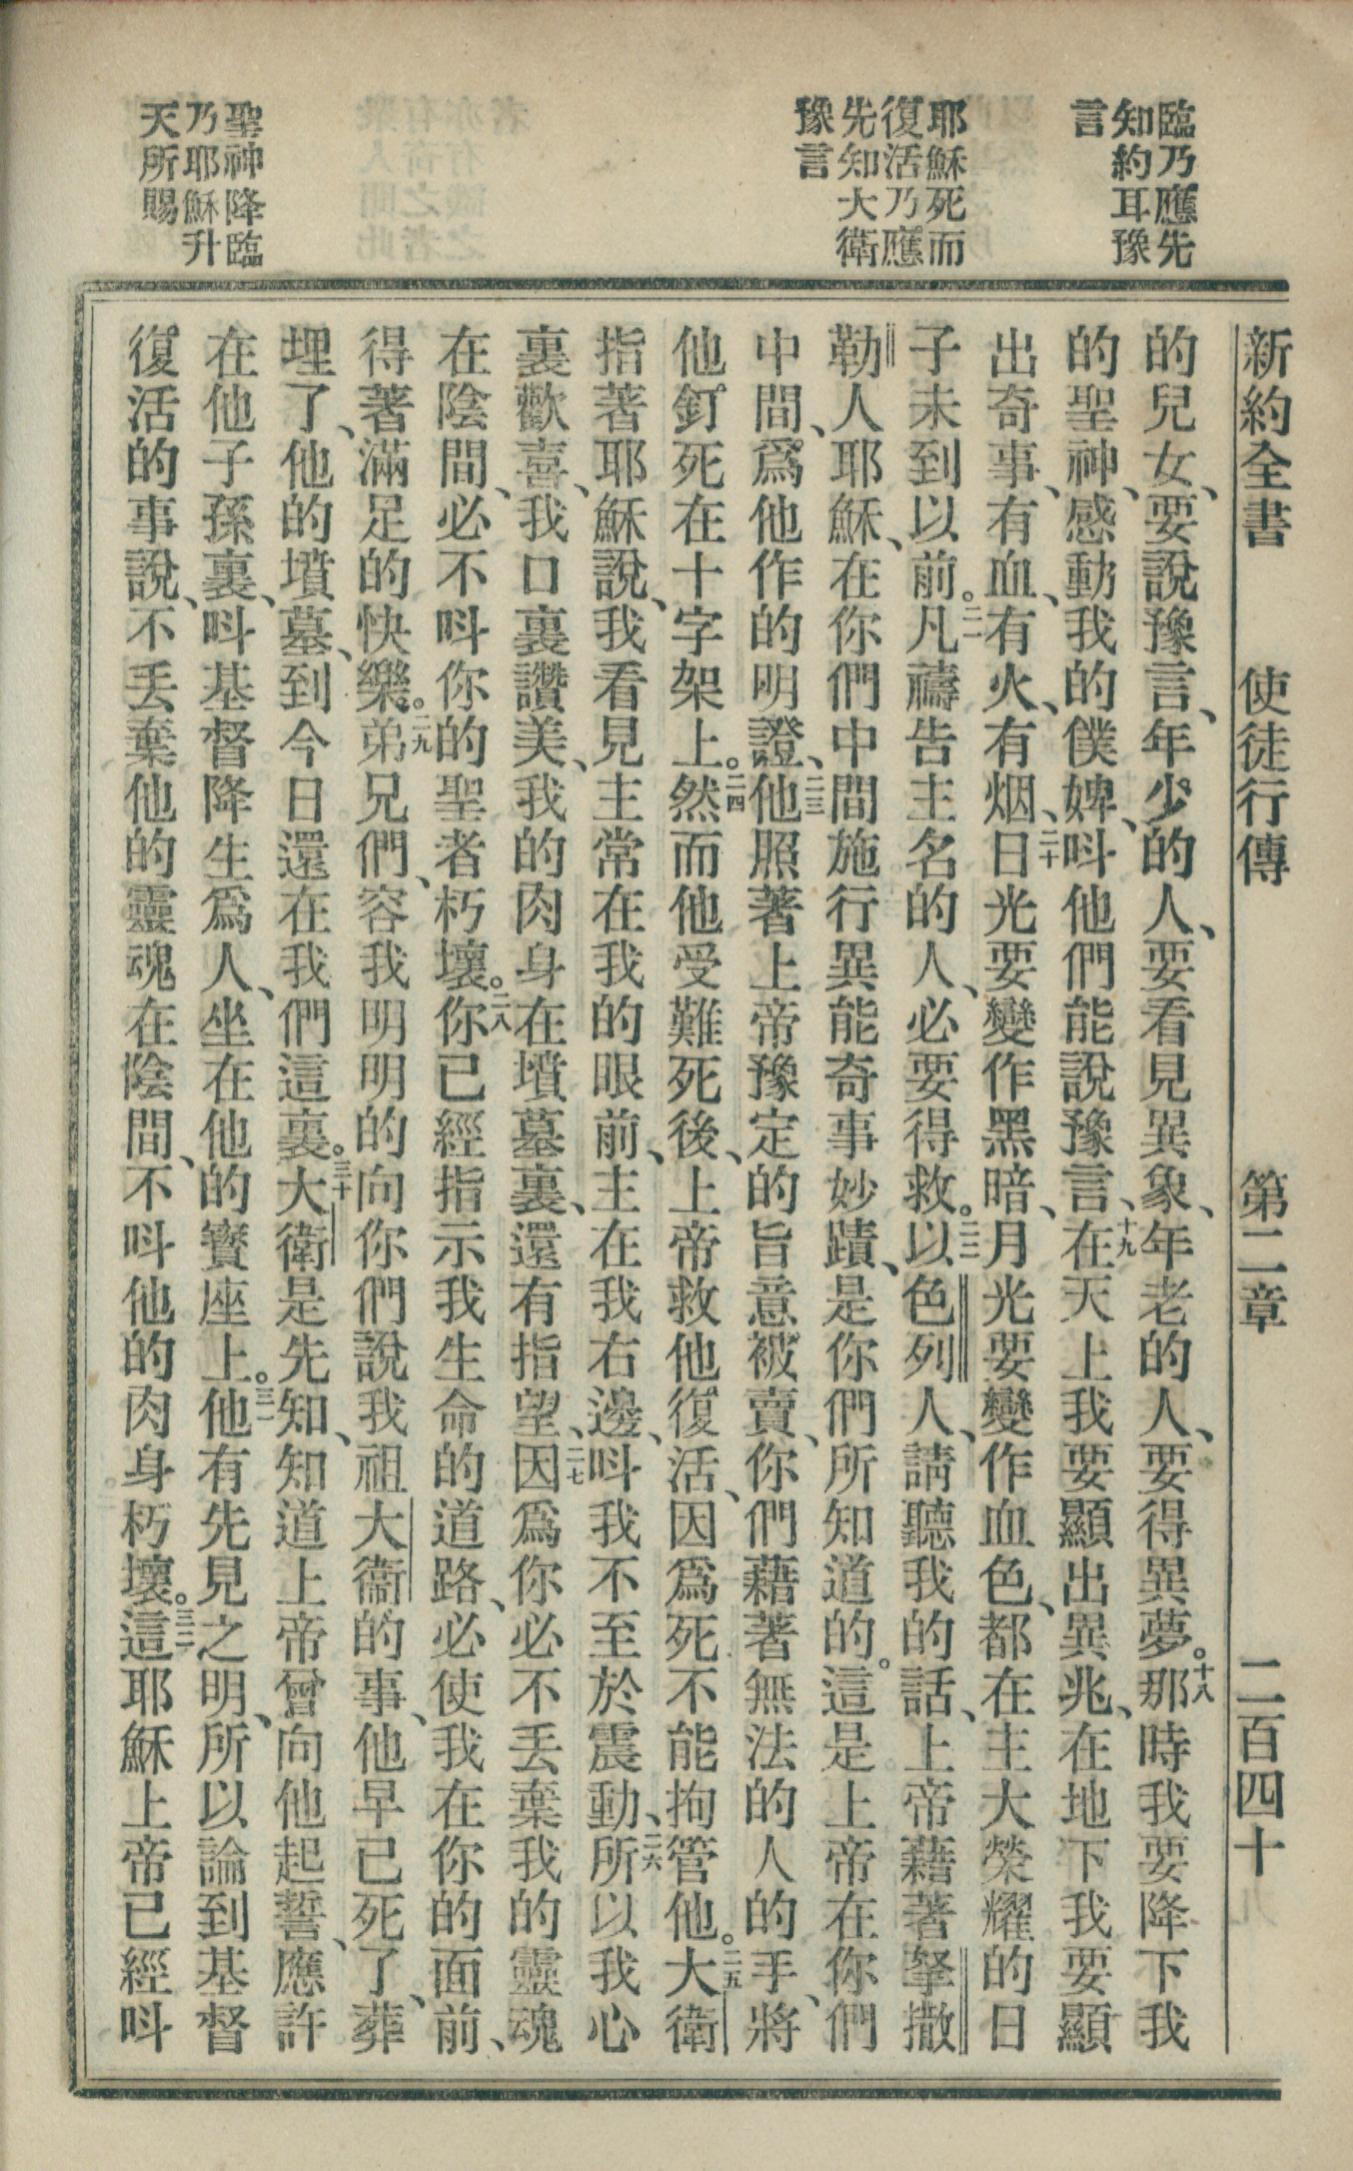 臨乃應先
知約耳豫
言
耶穌死而
復活乃應
先知大衛
豫言
聖神降臨
乃耶穌升
天所賜
新約全書 使徒行傳 第二章 二百四十
的兒女、要說豫言、年少的人、要看見異象、年老的人、要得異夢。十八那時我要降下我
的聖神、感動我的僕婢、呌他們能說豫言、十九在天上我要顯出異兆、在地下我要顯
出奇事、有血、有火、有烟、二十日光要變作黑暗、月光要變作血色、都在主大榮耀的日
子未到以前。二一凡禱告主名的人、必要得救。二二以色列人、請聽我的話、上帝藉著拏撒
勒人耶穌、在你們中間施行異能奇事妙蹟、是你們所知道的。這是上帝在你們
中間、爲他作的明證、二三他照著上帝豫定的旨意被賣、你們藉著無法的人的手、將
他釘死在十字架上。二四然而他受難死後、上帝救他復活、因爲死不能拘管他。二五大衛
指著耶穌說、我看見主常在我的眼前、主在我右邊、呌我不至於震動、二六所以我心
裏歡喜、我口裏讚美、我的肉身在墳墓裏、還有指望、二七因爲你必不丟棄我的靈魂
在陰間、必不呌你的聖者朽壞。二八你已經指示我生命的道路、必使我在你的面前、
得著滿足的快樂。二九弟兄們、容我明明的向你們說我祖大衞的事、他早已死了、葬
埋了、他的墳墓、到今日還在我們這裏。三十大衛是先知、知道上帝曾向他起誓、應許
在他子孫裏、呌基督降生爲人、坐在他的寶座上。三一他有先見之明、所以論到基督
復活的事說、不丟棄他的靈魂在陰間、不呌他的肉身朽壞。三二這耶穌上帝已經呌